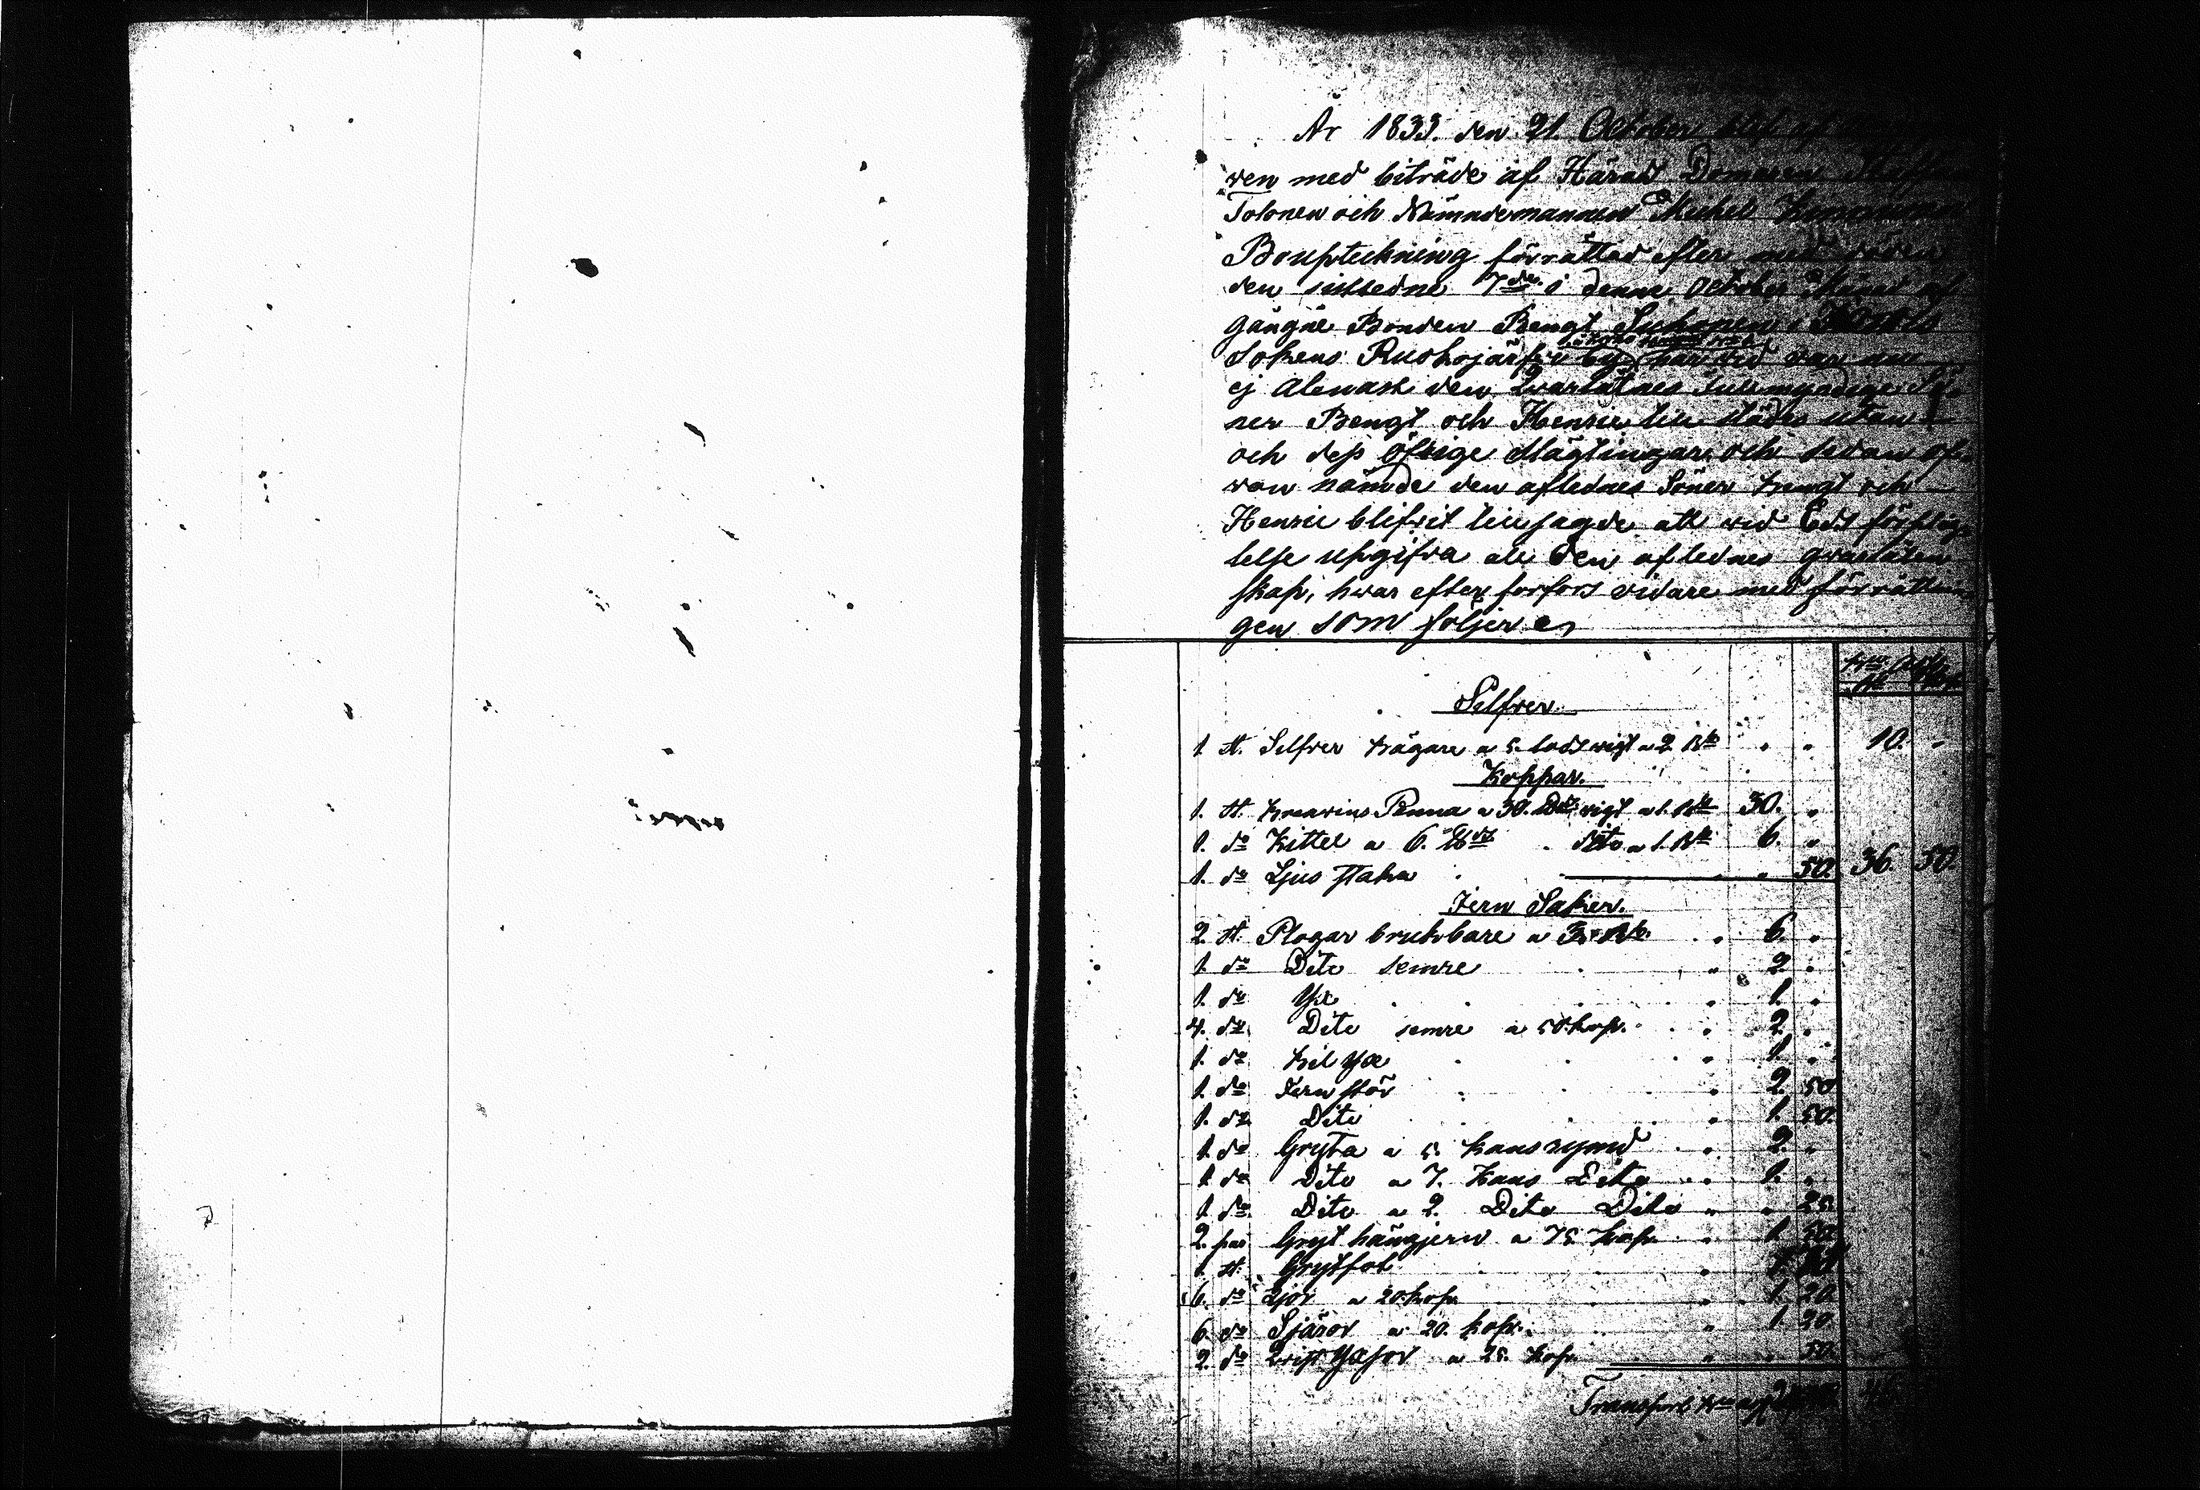 År 1833. den 21. October blef af
ren med biträde af Härads Domaren
Tolonen och Nämndemannen Michel
Bouptekning förrättad efter med döden
den sistledne 7de i denne October Månat af
gångne Bonden Bengt Suhonen i
Sokens Ruokojärfvi by
ej Alenast den Qvarlåtnes fulmyndige Sö-
ner Bengt och Henric till städes utan
och dess öfrige Mågtingar och sedan of-
van nämde den aflednes Söner Bengt och
Henric blifvit tillsagde att wid Eds förplig-
telse upgifva all den aflednes qvarlåten
skap, hwar efter forfors vidare med förrättnin
gen som följer
Selfver.
1. st. Selfver Bägare a 5. lods vigt a 2 Rb 10. -
Koppar.
1. st. Brenvins Panna a 30. vigt a 1. Rb 30. "
1. do Kittel a 6. dito a 1. Rb 6. "
1. do Ljus staka " 50. 36. 50.
Jern Saker.
2. st. Plogar brukbare a 3. Rb. " 6. "
1. do Dito semre " 2. "
1. do Yxe " 1. "
4. do Dito semre a 50 kop. " 2. "
1. do Bil yxe " 1. "
1. do Jern stör " 2. 50.
1. do Dito " 1. 50.
1. do Gryta a 5. kans rymd " 2. "
1. do Dito a 7. Kans Dito " 1. "
1. do Dito a 2. Dito Dito " " 25.
2. par Gryt hängjern a 75 kop. " 1. 50.
1. st. Grytfot "
6. do Ljor a 20. kop. " 1. 20.
6. do Sjäror a 20. kop. " 1. 20.
2. do a 25. kop. " " 50.
Transport